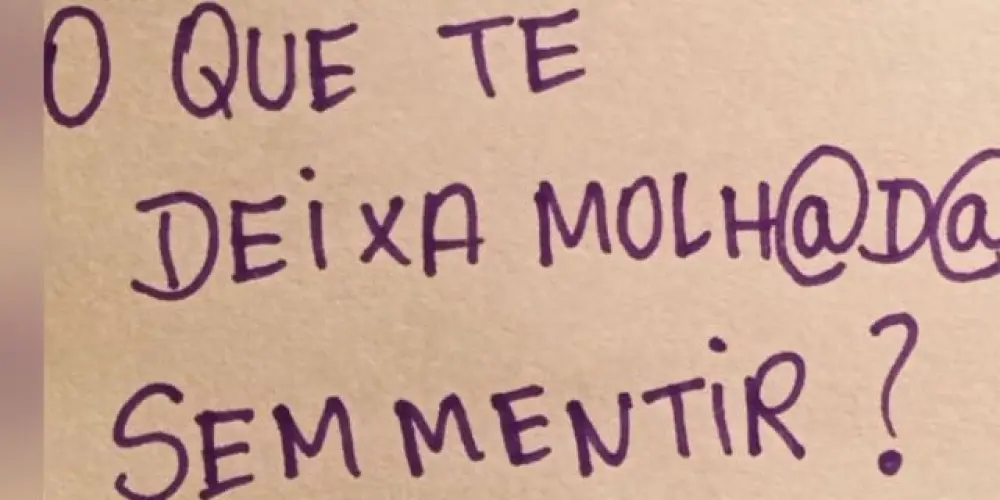 O QUE TE
DEIXA MOLH@D@
SEM MENTIR?